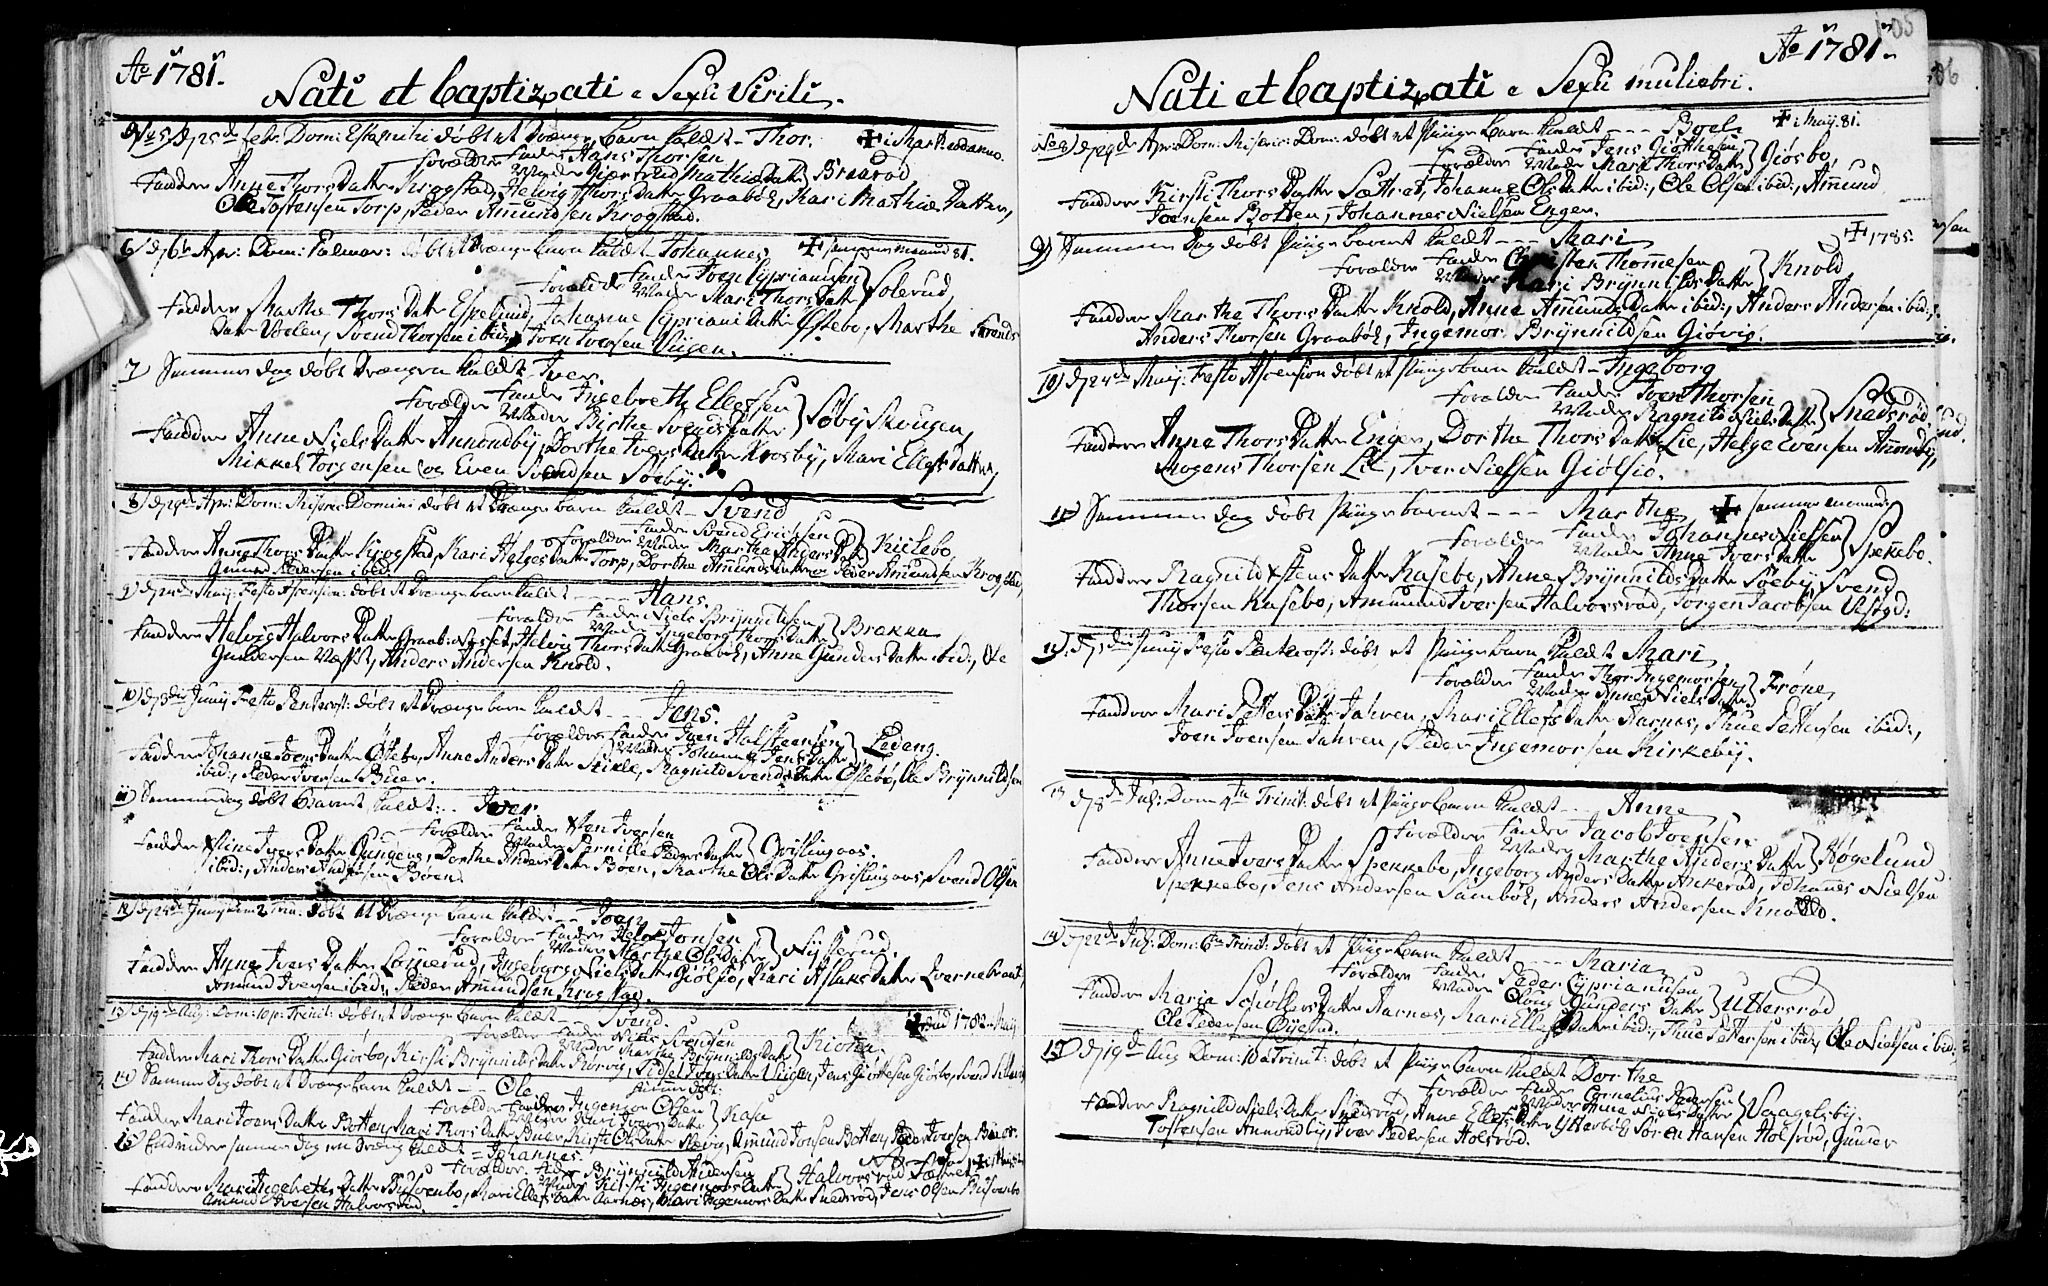 Ao 1781.
Nati et baptizati e Sexu Virili.
No 5) d. 25de Febr: Dom: Estomihi døbt et Drænge barn kaldt - Thor. ✝ i Mart: eod: anno.
Forældre Fader Hans Thorsen
Moder Giertrud Mathiædatter } Braarød
Faddere Anne Thors Datter Krogstad, Helvig Thors Datter Graabøl, Kari Mathiæ Datter,
Ole Tostensen Torp, Peder Amundsen Krogstad.
6) d. Apr: Dom: Palmar: døbt et Drænge barn kaldt - Johannes ✝ 81.
Forældre Fader Joen Cypriansen
Moder Mari Thors Datter } Solerud
Faddere Marthe Thors Datter Espelund, Johanne Cypriani Datter Østebø, Marthe
Datter Svend Thorsen ibid: Iver Iversen
7) Samme dag døbt Kaldt Iver.
Forældre Fader Ingebreth Ellefsen
Moder Birthe Svends Datter } Søby Skougen,
Faddere Anne Niels Datter Annondby, Dorthe Ivers Datter Krosby, Mari Ellefs Datter,
Mikkel Jørgensen og Even Svendsen Søeby.
8) d. 29de Apr: Dom: Miseric: Domini døbt et Drænge barn kaldt - Svend
Forældre Fader Svend Erichsen
Moder Marthe Anders D. }
Faddere Anne Thors Datter Krogstad, Kari Helges Datter Torp, Dorthe Amunds Datter Peder Amundsen Krogstad,
Gunner Pedersen ibid:
9) d. 24de Maij: Festo Ascension: døbt et Drænge barn kaldt - - - Hans.
Forældre Fader Niels Brynnildsen
Moder Ingeborg Thors Datter } Brække
Faddere Helvig Halvors Datter Helvig Thors Datter Graabøl, Anne Gunders Datter ibid:, Ole
Gundersen Anders Andersen Knold.
10) d. 3die Junij Festo Pentecost: døbt et Drænge barn kaldt - - Jens.
Forældre Fader Joen Halsteensen
Moder Johanne Jens Datter } Ledeng.
Faddere Johanne Joens Datter Østebø, Anne Anders Datter Ragnild Svends Datter Østebø, Ole Brynnildsen
ibid:, Peder Iversen Buer.
11) Samme dag døbt barnet kaldt: - Iver
Forældre Fader Iversen
Moder Pernille Peders Datter } Grislingaas.
Faddere Ivers Datter Dorthe Anders Datter Boen, Marthe Ols Datter Grislingaas, Svend Olsen
ibid:, Anders Andersen Boen.
12) d. Junij Dom: 2 Trin: døbt et Drænge barn kaldt - - Joen
Forældre Fader Helge Jonsen
Moder Marthe Olsdatter } Nysterud.
Faddere Anne Ivers Datter Ingeborg Niels Datter Giølsiø, Kari Aslaks Datter
Amund Iversen ibid:, Peder Amundsen Krogstad.
13) d. 19de Aug: Dom: 10 p: Trinit: døbt et Drænge barn kaldt - - Svend. ✝ død 1782 Maij
Forældre Fader Niels Svendsen
Moder Marthe Brynnilds Datter }
Faddere Mari Thors Datter Giøsbø, Kirsti Brynnilds Datter Jens Giøthesen Giøsbø,
14) Samme Dag døbt et Drænge barn kaldt - - Ole
Forældre Fader Ingemor Olsen
Moder Kari Ivers Datter } Kasa
Faddere Mari Joens Datter Botten, Mari Thors Datter Buer, Kirsti Ols Datter Amund Jonsen Botten, Peder Iversen Buer.
15) Endnu samme dag en Dreng kaldt = Johannes.
Forældre Fader Brynnild Andersen
Moder Kirsti Ingemors Datter } Halvorsrød
Faddere Mari Ingebreths Datter Mari Ellefs Datter Aarnæs, Mari Ingemors Datter Snedsrød, Jens Olsen
Amund Iversen Halvorsrød.
105
Ao 1781
Nati et baptizati e Sexu muliebri.
No 8) d. 29de Apr: Dom: Miseric: Dom: døbt et Piige barn kaldt - - - Boel. ✝ i Maij 81.
Forældre Fader Jens Giøthesen
Moder Mari Thors Datter } Giøsbø,
Faddere Kirsti Thors Datter Sættret, Johanne Ols Datter ibid:, Ole Olsen ibid:, Amund
Joensen Botten, Johannes Nielsen Enger.
9) Samme Dag døbt Piige barnet kaldt - - - Mari ✝ 1785.
Forældre Fader Christen Thommesen
Moder Kari Brynnilds Datter } Knold,
Faddere Marthe Thors Datter Knold, Anne Amunds Datter ibid:, Anders Andersen ibid:,
Anders Thorsen Graabøl, Ingemor Brynnildsen Giøvig.
10) d. 24de Maij: Festo Ascension døbt et Piige barn kaldt - Ingeborg
Forældre Fader Iver Thorsen
Moder Ragnild Niels Datter } Snedsrød.
Faddere Anne Thors Datter Enger, Dorthe Thors Datter Lie, Helge Evensen Annondby,
Mogens Thorsen Lie, Iver Nielsen Giølsiø.
11) Samme dag døbt Piige barnet - - - Marthe ✝ samme
Forældre Fader Johannes Nielsen
Moder Anne Ivers Datter } Spekkebo.
Faddere Ragnild Datter Kasebo, Anne Brynnilds Datter Søeby, Svend
Thorsen Kasebo, Amund Iversen Halvorsrød, Jørgen Jacobsen
12) d. Junij Festo Pentecost: døbt et Piige barn kaldt Mari
Forældre Fader Thor Ingemorsen
Moder Anne Niels Datter } Frøne,
Faddere Mari Petters Datter Jahren, Mari Ellefs Datter Aarnæs, Thue Pettersen ibid:,
Joen Ivensen Jahren, Peder Ingemorsen Kirkeby.
13 d. 8de Julj: Dom 4ta Trinit: døbt et Piige barn kaldt - - Anne
Forældre Fader Jacob Joensen
Moder Marthe Anders Datter } Høgelund
Faddere Anne Ivers Datter Spekkebo, Ingeborg Anders Datter Ankerød, Johannes Nielsen
Spekkebo, Jens Andersen Sambøl, Anders Andersen Knold.
14) d. 22de Julj: Dom: 6ta Trinit: døbt et Piige barn kaldt - - - Maria
Forældre Fader Peder Cypriansen
Moder Gunders Datter } Uttersrød
Faddere Maria Datter Aarnæs, Mari Ellefs Datter ibid:, Thue Pettersen ibid:, Ole Nielsen ibid:,
Ole Pedersen
15) d. 19de Aug Dom: 10 a Trinit: døbt et Piige barn kaldt Dorthe
Forældre Fader Cornelius Pedersen
Moder Anne Niels Datter }
Faddere Ragnild Niels Datter Snedsrød, Anne Ellefs Datter Søren Hansen Holsrød, Gunner
Tostensen Annondby, Iver Pedersen Holsrød.